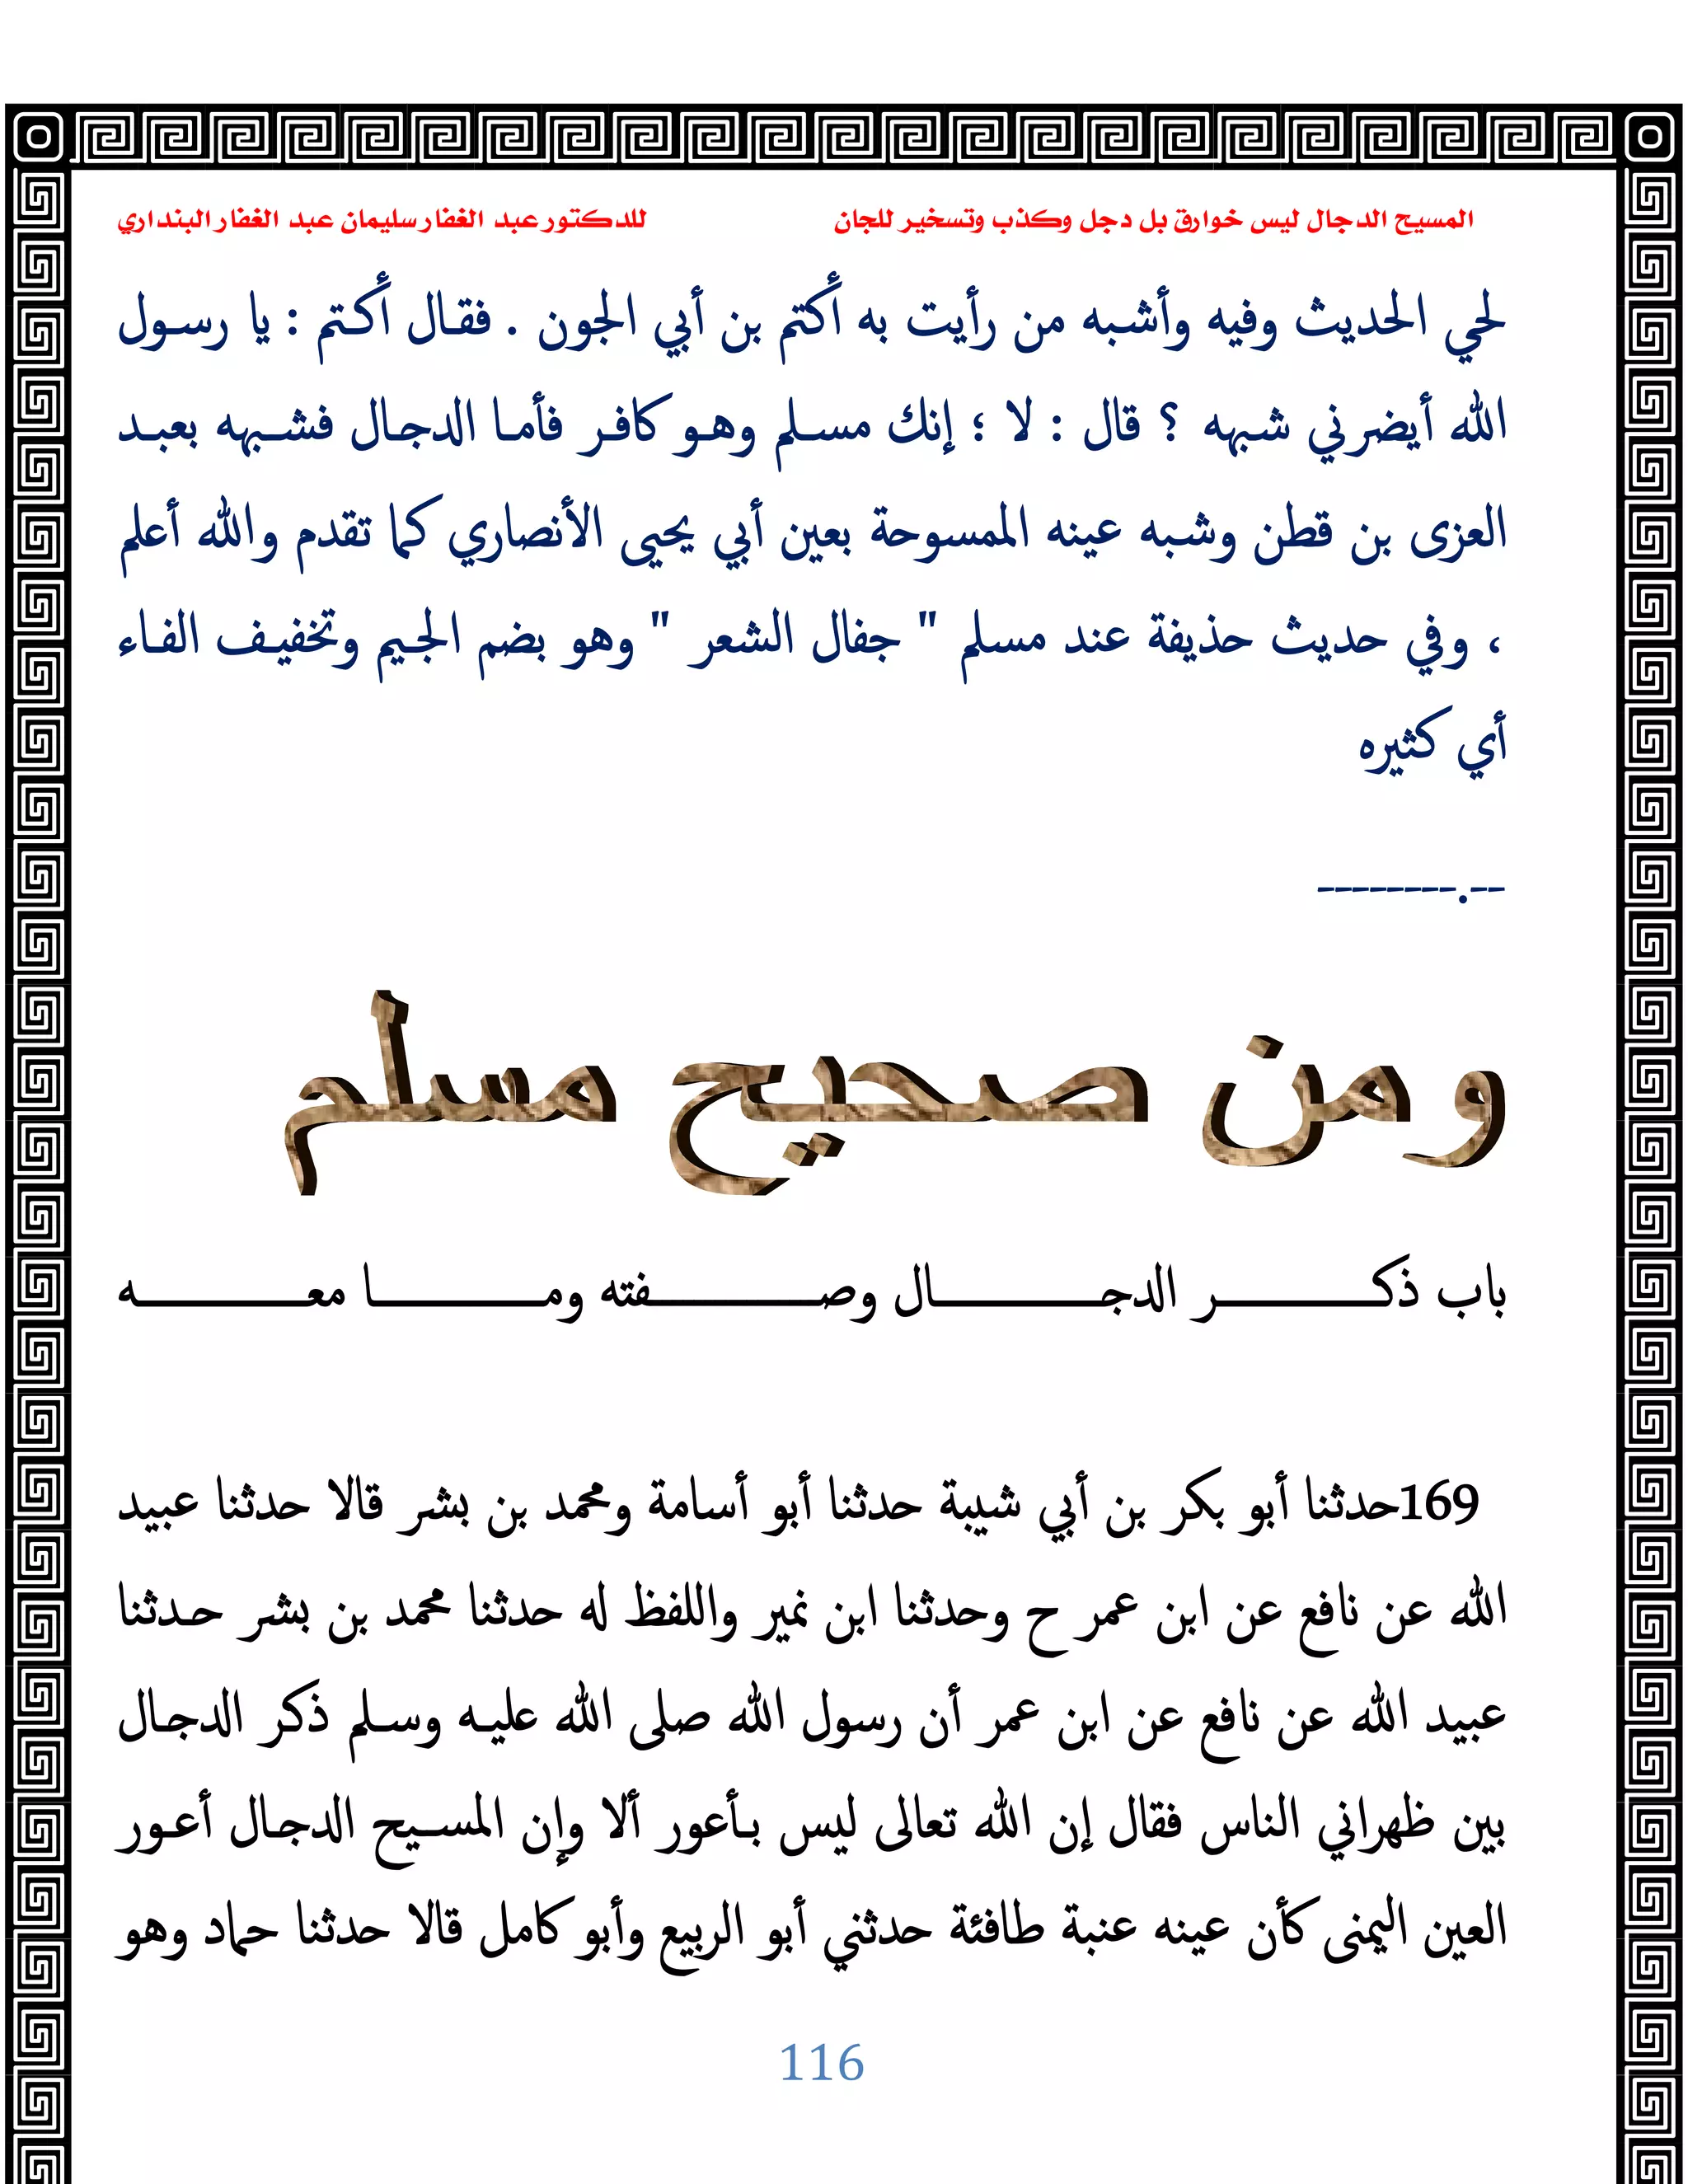 المسيح الدجال ليس خوارق بل دجل وكذب وتسخير للجان للدكتور عبد الغفار سليمان عبد الغفار البنداري
لحي الحديث وفيه وأشبه من رأيت به أكثم بن أبي الجون . فقال أكثم : يا رسول
الله أيضرني شبهه ؟ قال : لا ؛ إنك مسلم وهو كافر فأما الدجال فشبهه بعبد
العزى بن قطن وشبه عينه الممسوحة بعين أبي يحيى الأنصاري كما تقدم والله أعلم
، وفي حديث حذيفة عند مسلم " جفال الشعر " وهو بضم الجيم وتخفيف الفاء
أي كثيره
--.--------
ومن صحيح مسلم
باب ذكر الدجال وصفته وما معه
169حدثنا أبو بكر بن أبي شيبة حدثنا أبو أسامة ومحمد بن بشر قالا حدثنا عبيد
الله عن نافع عن ابن عمر ح وحدثنا ابن نمير واللفظ له حدثنا محمد بن بشر حدثنا
عبيد الله عن نافع عن ابن عمر أن رسول الله صلى الله عليه وسلم ذكر الدجال
بين ظهراني الناس فقال إن الله تعالى ليس بأعور ألا وإن المسيح الدجال أعور
العين اليمنى كأن عينه عنبة طافئة حدثني أبو الربيع وأبو كامل قالا حدثنا حماد وهو
116